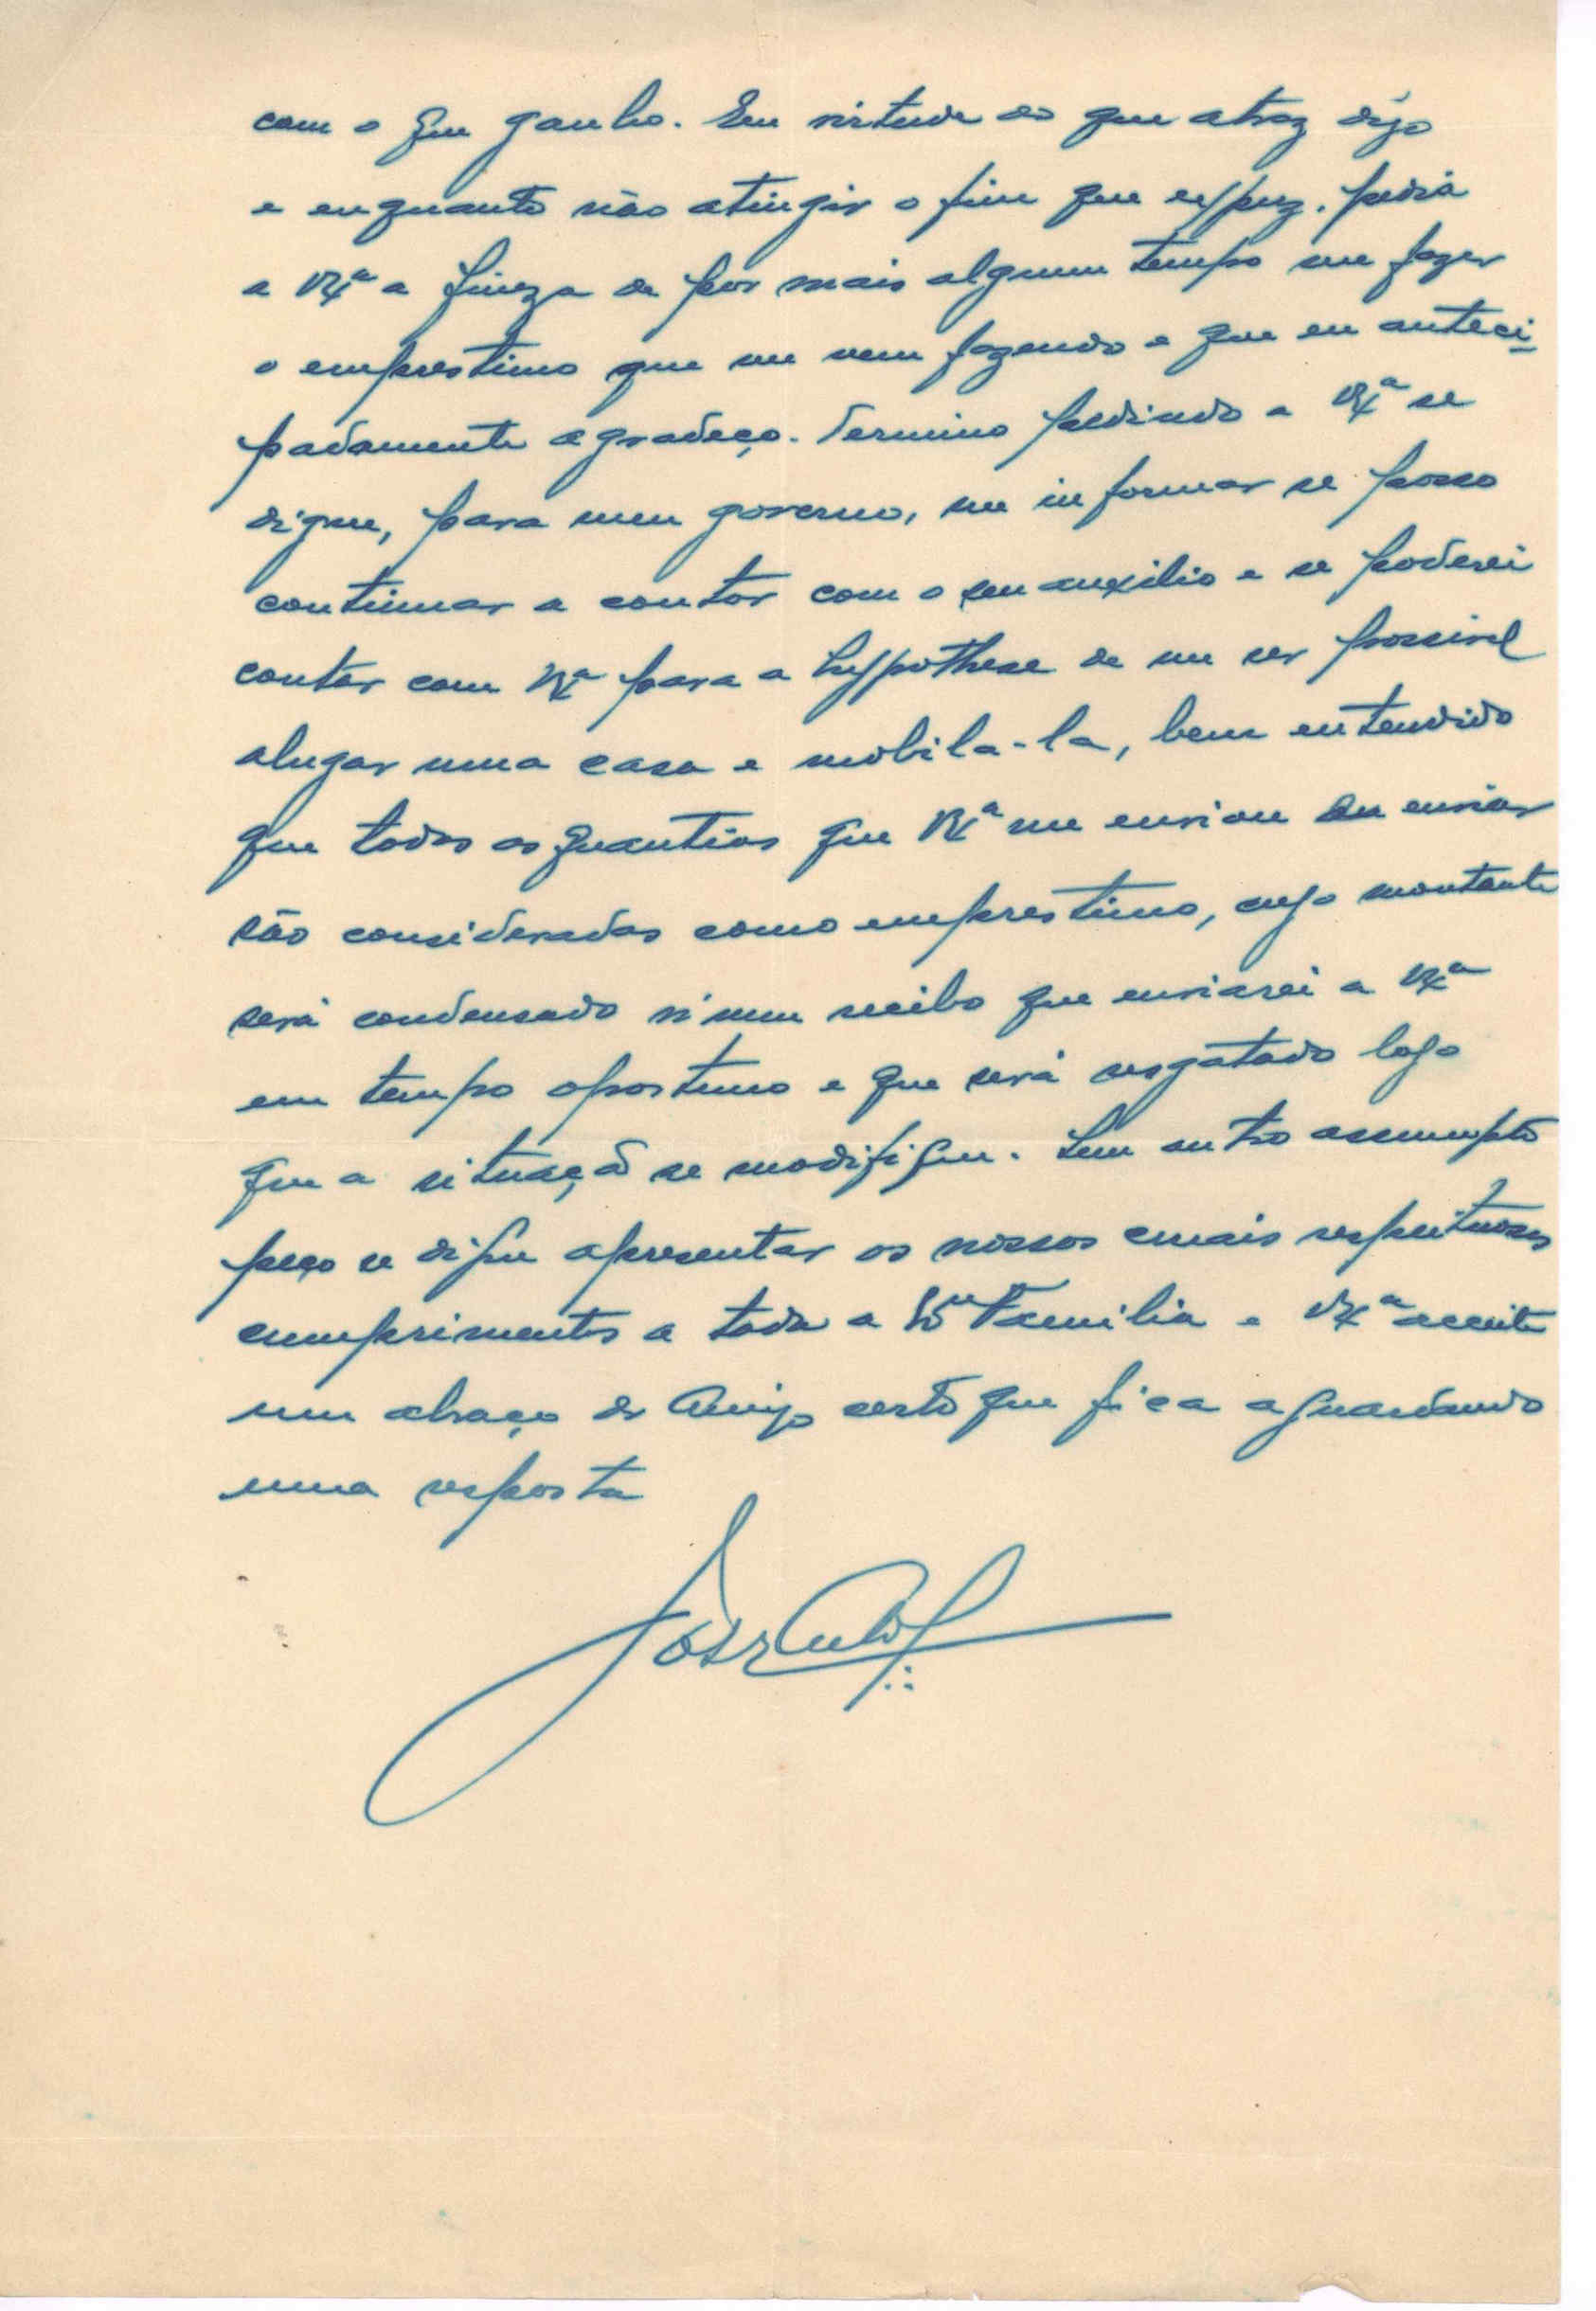 com o que ganho. Em virtude do que atraz digo
e enquanto não atingir o fim que expuz, pedia
a VExª a fineza de por mais algum tempo me fazer
o emprestimo que me vem fazendo e que eu anteci-
padamente agradeço. Termino pedindo a VExª se
digne, para meu governo, me informar se posso
continuar a contar com o seu auxilio e se poderei
contar com VExª para a hypothese de me ser possivel
alugar uma casa e mobila-la, bem entendido
que todas as quantias que VExª me enviou ou enviar
são consideradas como emprestimo, cujo montante
será condensado n'um recibo que enviarei a VExª
em tempo oportuno e que será resgatado logo
que a situação se modifique. Sem outro assumpto
peço se digne apresentar os nossos mais respeitosos
cumprimentos a toda a Familia e VExª acceite
um abraço do Amigo certo que fica aguardando
uma resposta
José